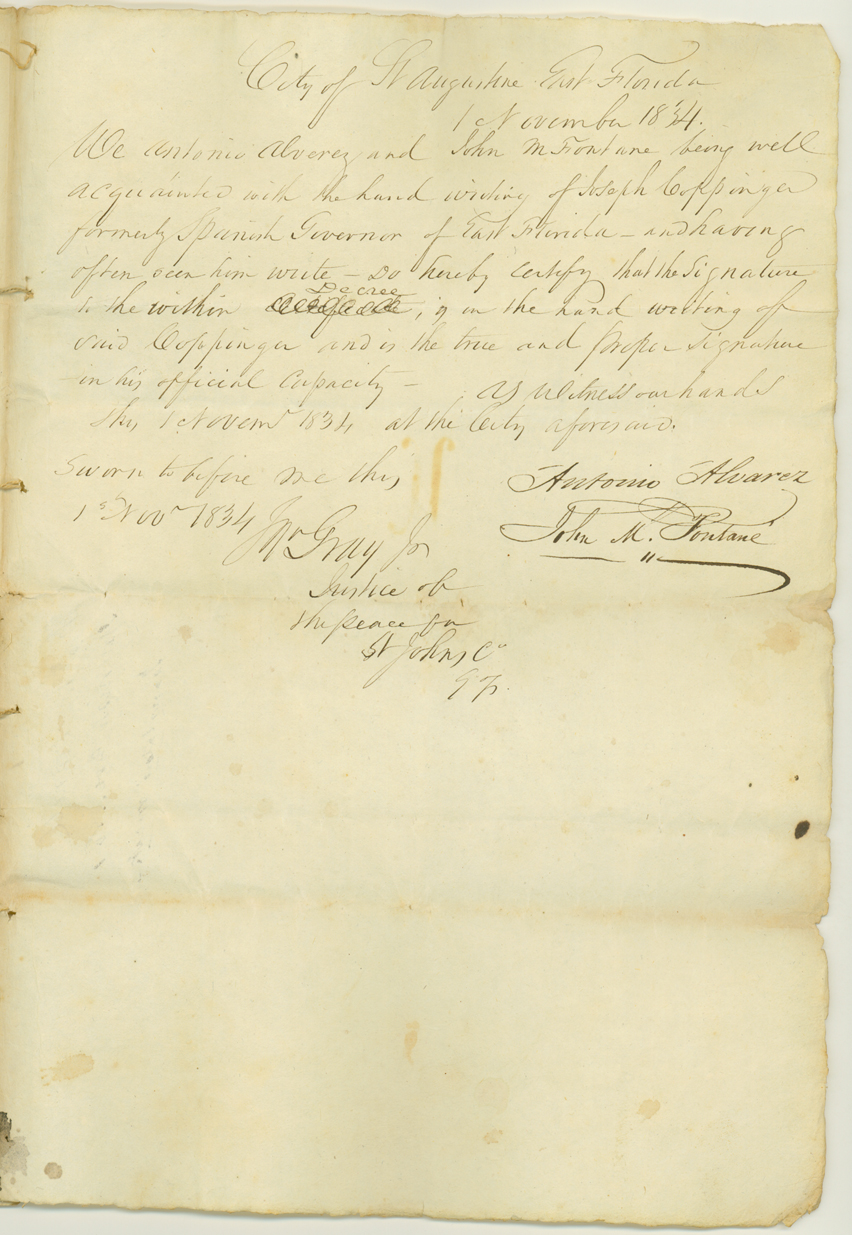 City of St Augustine East Florida
1 November 1834.
We Antonio Alverez and John M Fontane being well
acquainted with the hand writing of Joseph Coppinger
formerly Spanish Governor of East Florida – and having
often seen him write – Do hereby certify that the Signature
Decree
to the within , is in the hand writing of
said Coppinger and is the true and proper Signature
in his official capacity – As witness our hands
this 1 Novemr 1834 at the City aforesaid.
Sworn to before me this
1st Novr 1834
Antonio Alvarez
John M. Fontané
Jnº Gray Jr
Justice of
the peace for
St Johns Cº
E F.